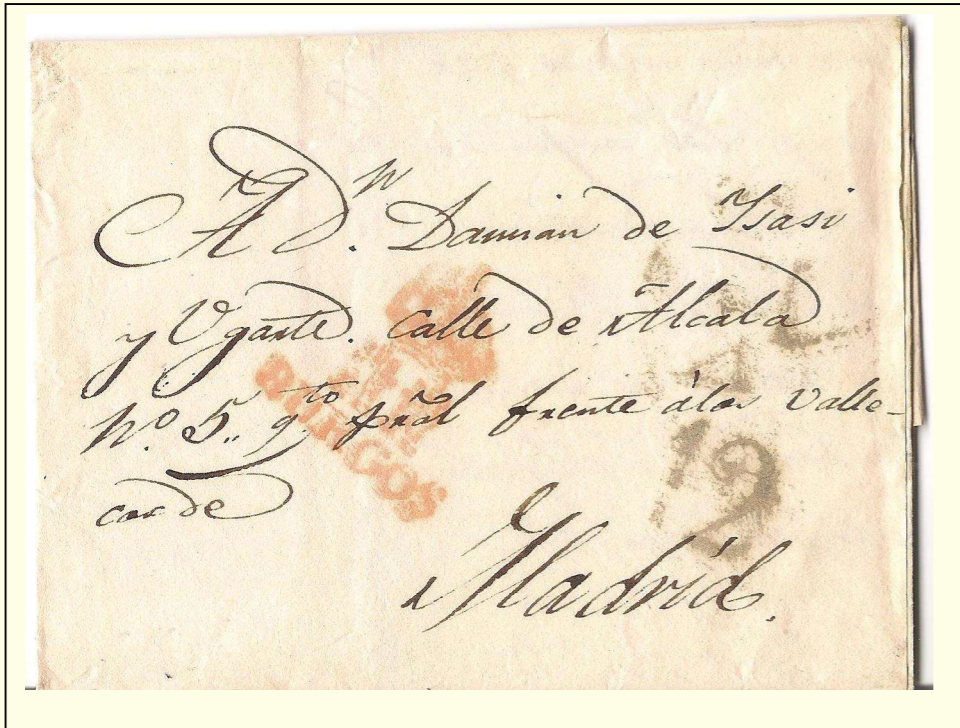 A D.n Damian de Ysasi
y Ugarte. Calle de Alcala
N.o 5,, q.to pñal frente álas Valle-
cas de
Madrid.
BURGOS
12